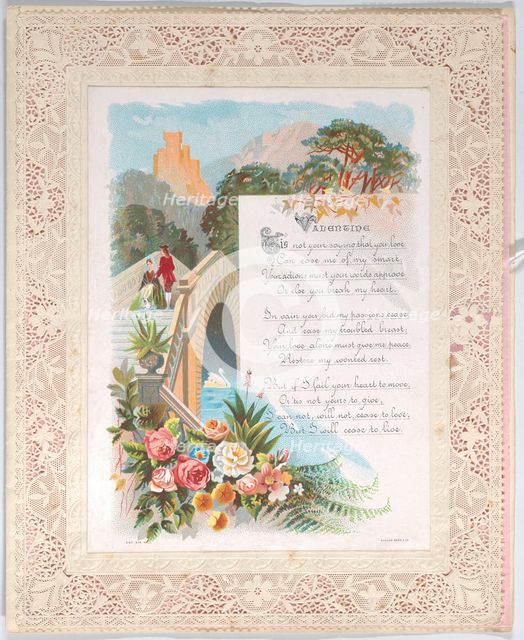 Valentine
Tis not your saying that you love
Can ease me of my smart;
Your actions must your words approve
Or else you break my heart.
In vain you bid my passions cease
And ease my troubled breast;
Your love alone must give me peace,
Restore my wonted rest.
But if I fail your heart to move,
Or 'tis not yours to give,
I can not, will not, cease to love,
But I will cease to live.
Heritage
Images